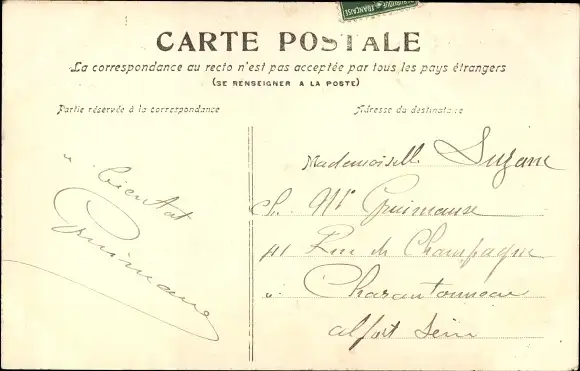 CARTE POSTALE
La correspondance au recto n'est pas acceptée par tous les pays étrangers
(SE RENSEIGNER A LA POSTE)
Partie réservée à la correspondance
Adresse du destinataire
a bientot
Guimause
Mademoiselle Suzane
Ch. Mr Guimause
41 Rue de Champagne
a Charantonneau
alfort Seine